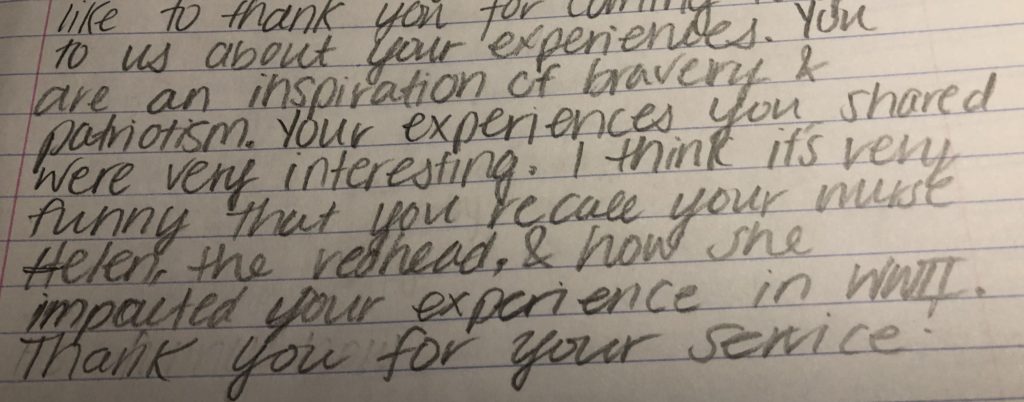 like to thank you for coming
to us about your experiences. You
are an inspiration of bravery &
patriotism. Your experiences you shared
were very interesting. I think it's very
funny that you recall your nurse
Helen, the redhead, & how she
impacted your experience in WWII.
Thank you for your service.